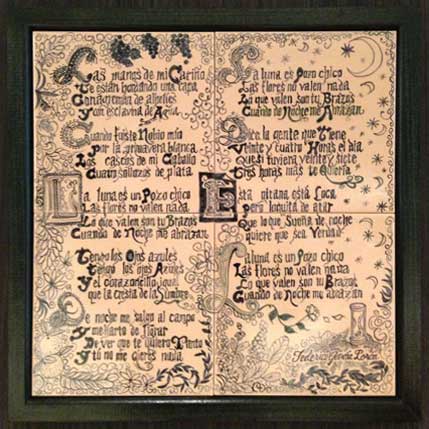 Las manos de mi Cariño
Te están bordando una capa
Con agremán de alhelíes
Y con esclavina de Agua
Cuando fuiste Novio mío
Por la primavera blanca
Los cascos de mi Caballo
Cuatro sollozos de plata.
La luna es un Pozo chico
Las flores no valen nada
Lo que valen son tu Brazos
Cuando de Noche me abrazan
Tengo los Ojos azules
Tengo los ojos Azules
Y el corazoncillo igual
que la cresta de la Lumbre
De noche me salgo al campo
y me harto de llorar
De ver que te quiero Tanto
y tú no me quieres nada
La luna es Pozo chico
Las flores no valen nada
Lo que valen son tu Brazos
Cuando de Noche me Abrazan
Dice la gente que Tiene
Veinte y cuatro Horas el día
Que si tuviera veinte y siete
Tres horas más te Quería
Esta gitana está Loca
Pero loquita de atar
Que lo que Sueña de noche
quiere que sea Verdad
La luna es un Pozo chico
Las flores no valen nada
Lo que valen son tu Brazos
Cuando de Noche me abrazan
Federico García Lorca